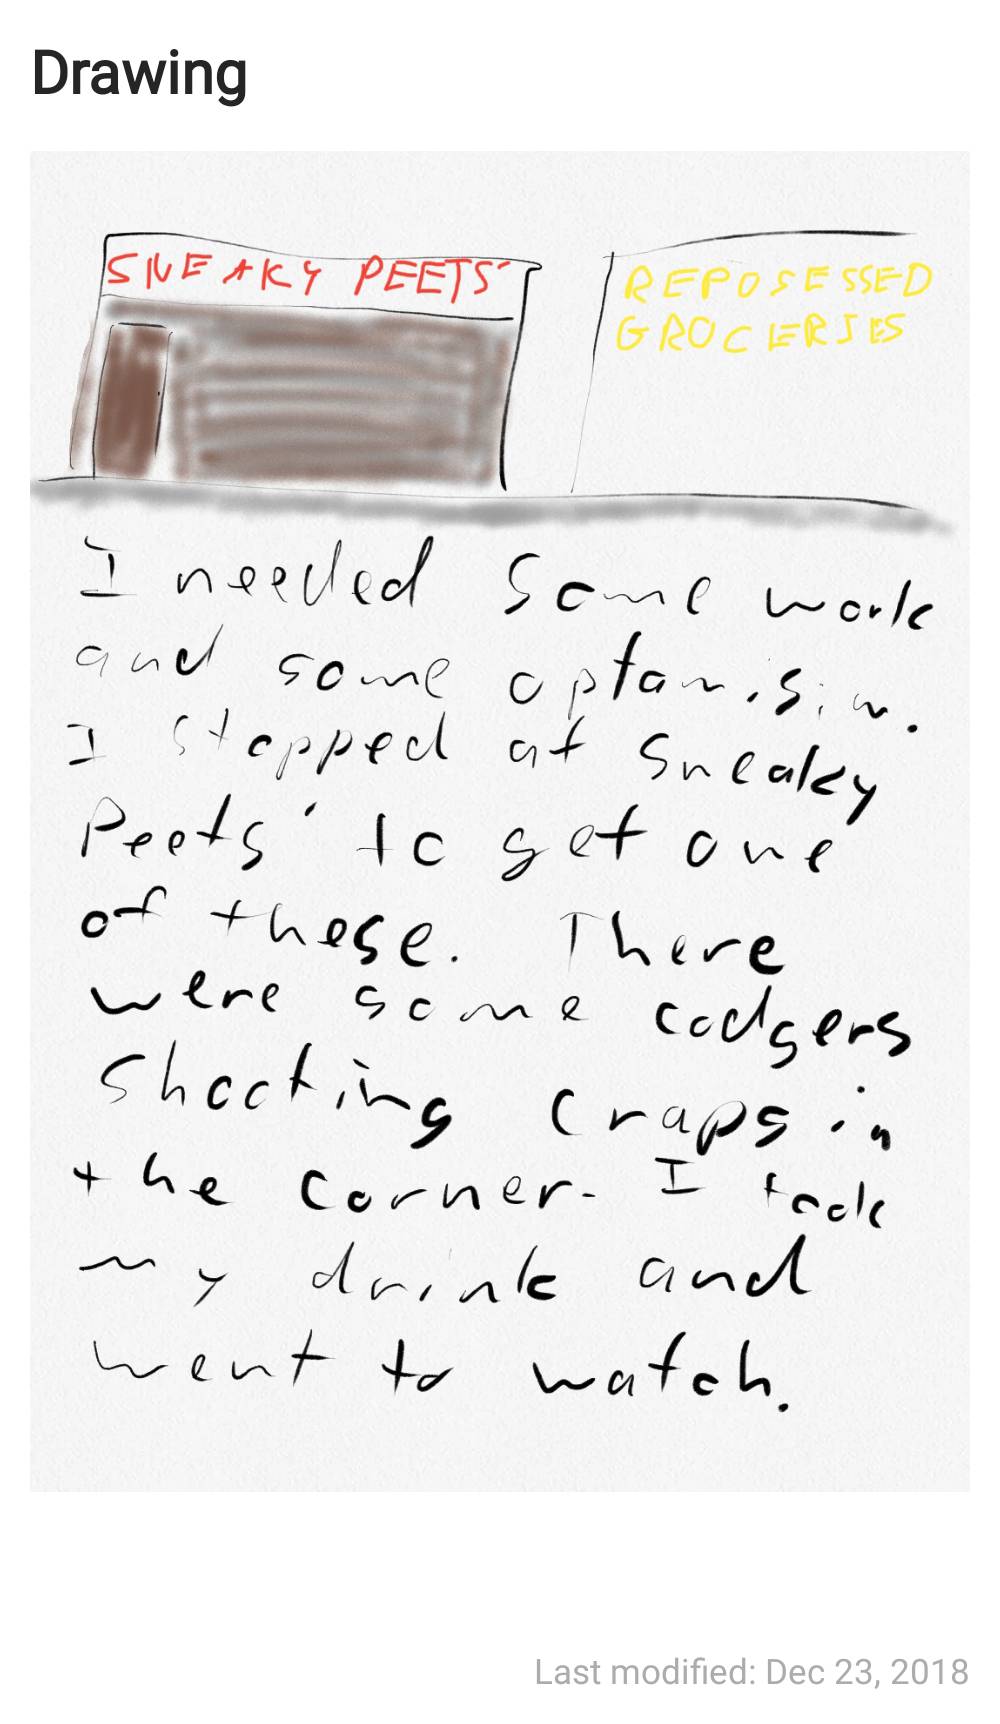 Drawing
SNEAKY PEETS'
REPOSESSED
GROCERIES
I needed some work
and some optamisim.
I stopped at Sneaky
Peets' to get one
of these. There
were some codgers
shooting craps in
the corner. I took
my drink and
went to watch.
Last modified: Dec 23, 2018